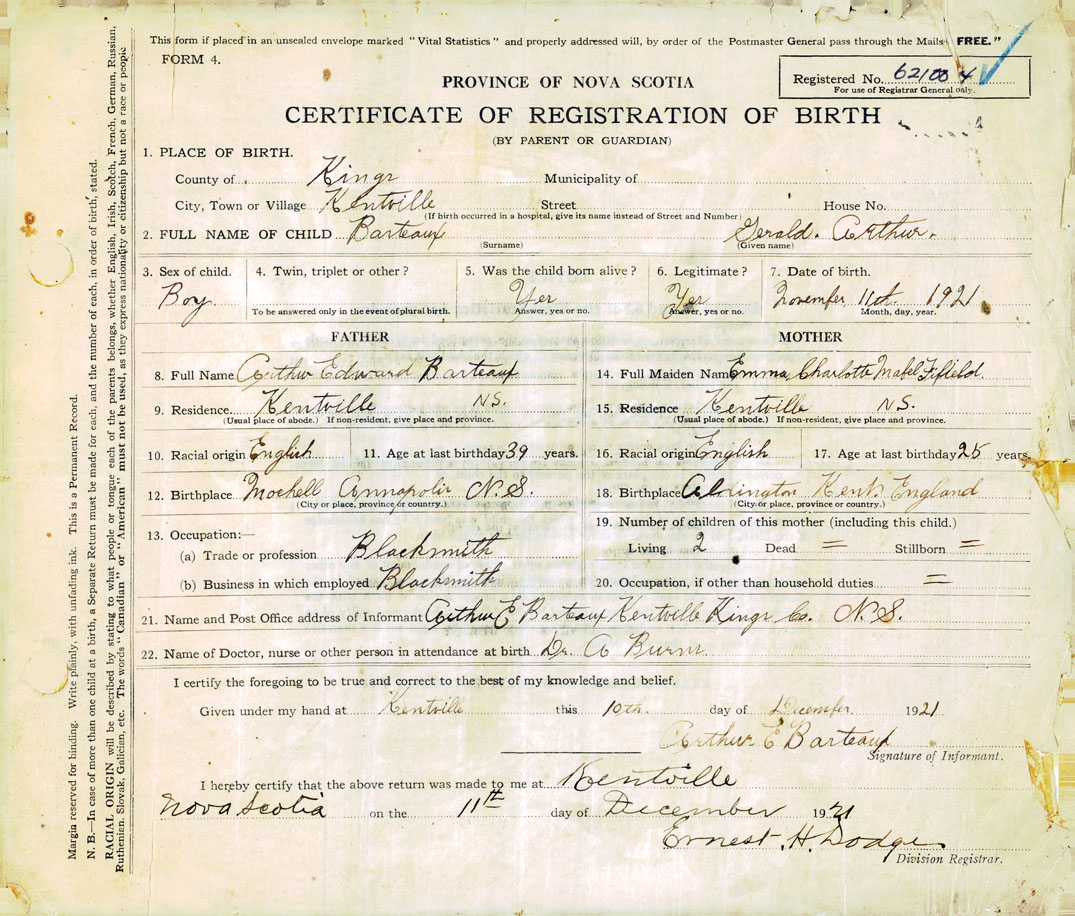 This form if placed in an unsealed envelope marked "Vital Statistics" and properly addressed will, by order of the Postmaster General pass through the Mails FREE."
FORM 4.
Registered No. 621004
For use of Registrar General only.
PROVINCE OF NOVA SCOTIA
CERTIFICATE OF REGISTRATION OF BIRTH
(BY PARENT OR GUARDIAN)
1. PLACE OF BIRTH.
County of Kings Municipality of
City, Town or Village Kentville Street House No.
(If birth occurred in a hospital, give its name instead of Street and Number)
2. FULL NAME OF CHILD Barteaux Gerald. Arthur.
(Surname) (Given name)
3. Sex of child. 4. Twin, triplet or other? 5. Was the child born alive? 6. Legitimate? 7. Date of birth.
Boy Yes Yes November 11th. 1921
To be answered only in the event of plural birth. Answer, yes or no. Answer, yes or no. Month, day, year.
FATHER MOTHER
8. Full Name Arthur Edward Barteaux 14. Full Maiden Name Emma Charlotte Mabel Fifield.
9. Residence Kentville N.S. 15. Residence Kentville N.S.
(Usual place of abode.) If non-resident, give place and province. (Usual place of abode.) If non-resident, give place and province.
10. Racial origin English 11. Age at last birthday 39 years. 16. Racial origin English 17. Age at last birthday 25 years
12. Birthplace Annapolis N.S. 18. Birthplace Kent. England
(City or place, province or country.) (City or place, province or country.)
19. Number of children of this mother (including this child.)
13. Occupation:—
(a) Trade or profession Blacksmith Living 2 Dead = Stillborn =
(b) Business in which employed Blacksmith 20. Occupation, if other than household duties =
21. Name and Post Office address of Informant Arthur E Barteaux Kentville Kings Co. N.S.
22. Name of Doctor, nurse or other person in attendance at birth Dr. A Burns.
I certify the foregoing to be true and correct to the best of my knowledge and belief.
Given under my hand at Kentville this 10th. day of December 1921
Arthur E Barteaux
Signature of Informant.
I hereby certify that the above return was made to me at Kentville
Nova Scotia on the 11th day of December 1921
Ernest. H. Dodge
Division Registrar.
Margin reserved for binding. Write plainly, with unfading ink. This is a Permanent Record.
N. B.—In case of more than one child at a birth, a Separate Return must be made for each, and the number of each, in order of birth, stated.
RACIAL ORIGIN will be described by stating to what people or tongue each of the parents belongs, whether English, Irish, Scotch, French, German, Russian,
Ruthenian, Slovak, Galician, etc. The words "Canadian" or "American" must not be used, as they express nationality or citizenship but not a race or people